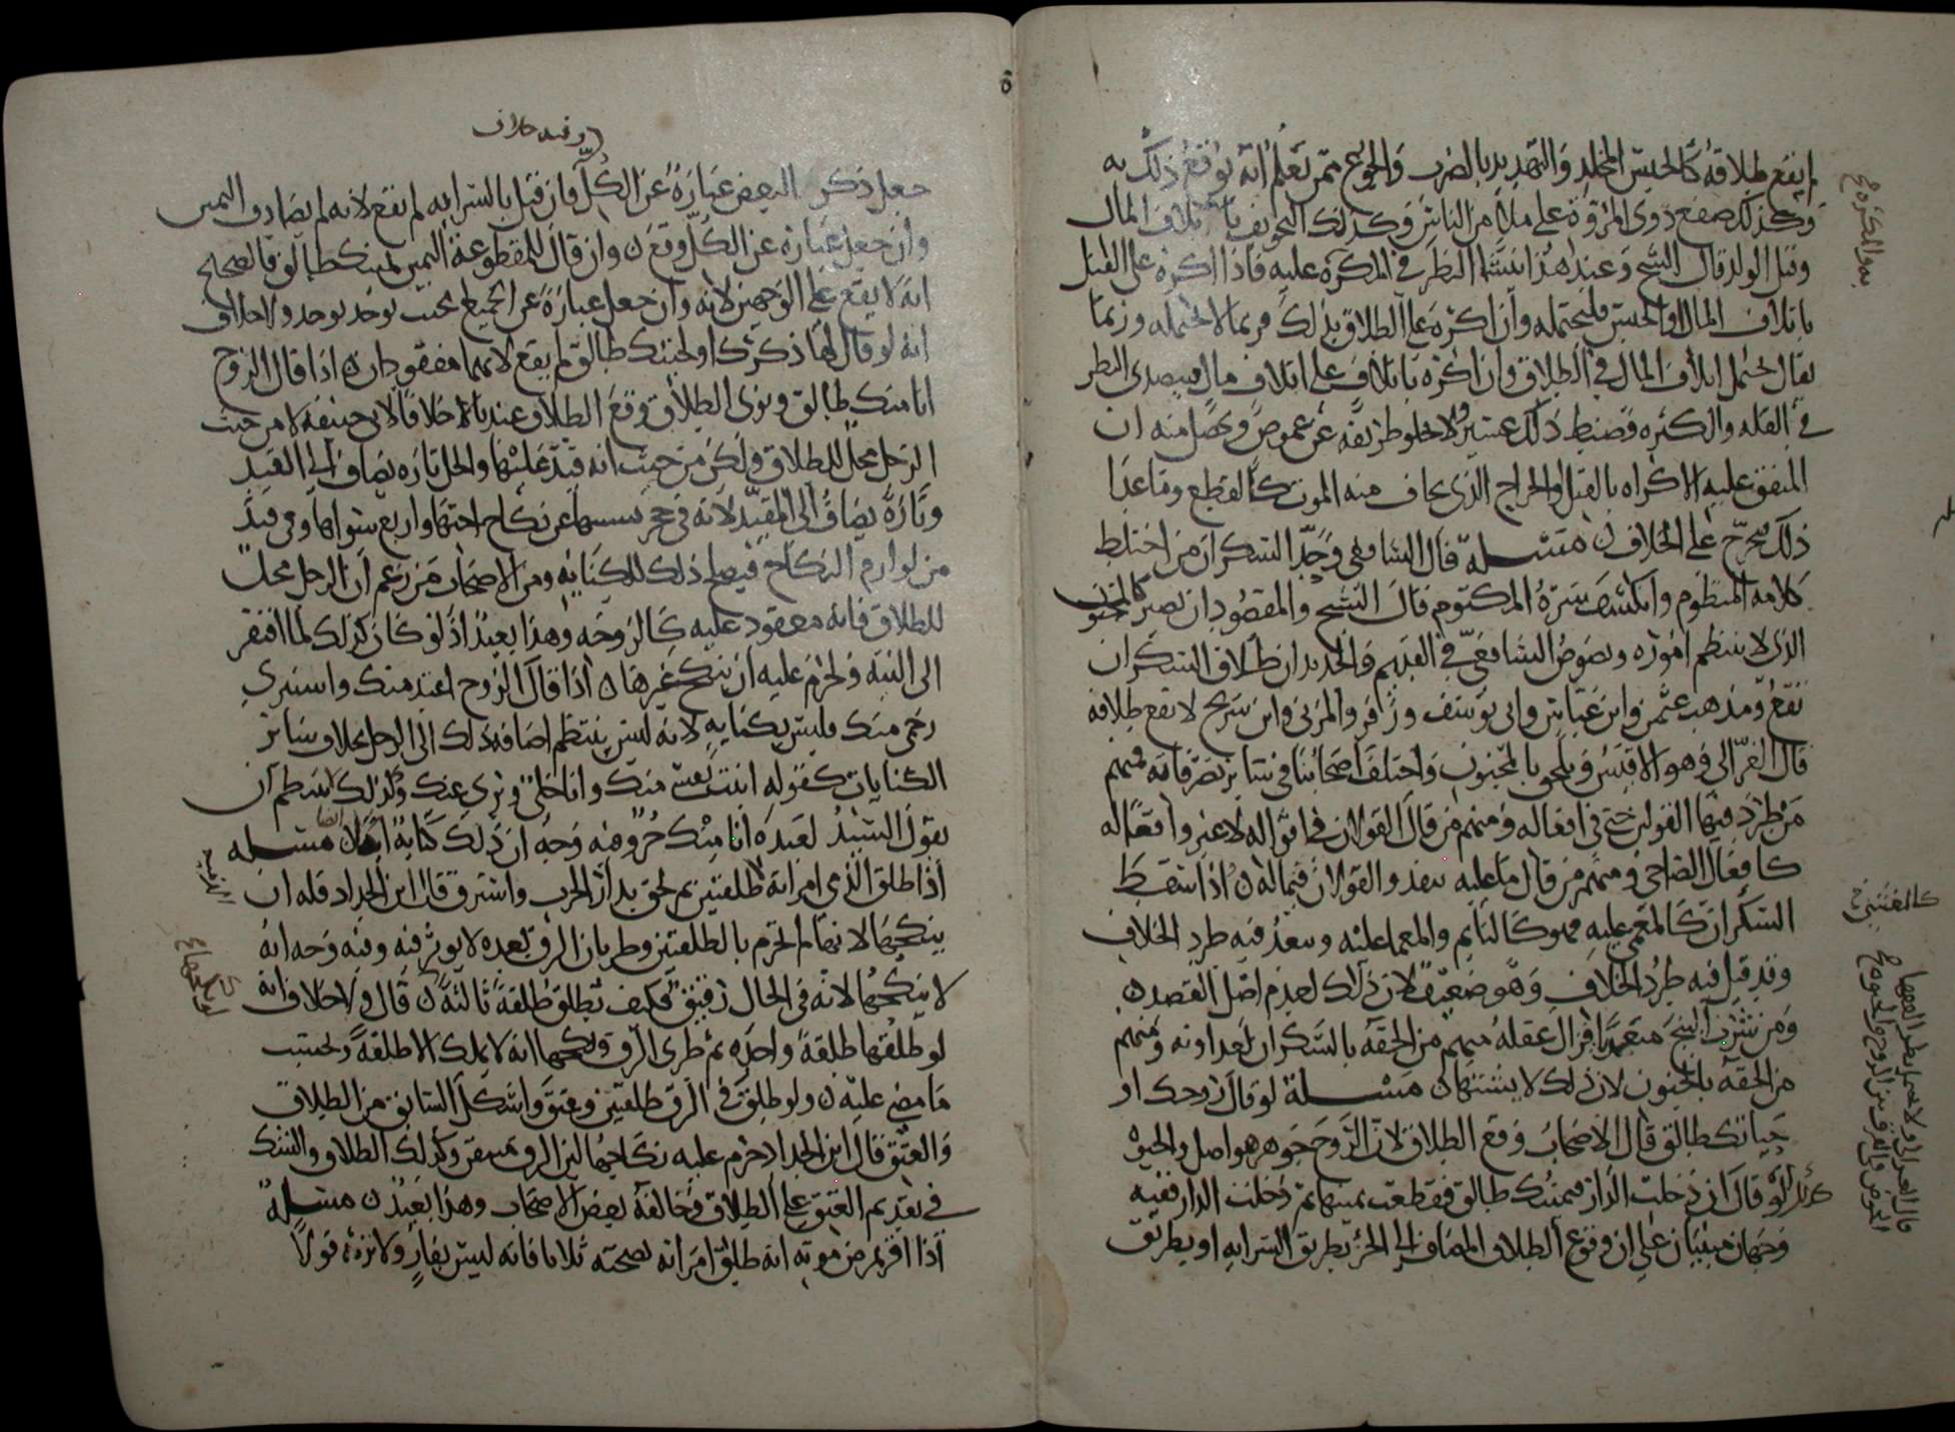 لم يقع طلاقه كالحبس المخلد والتهديد بالضرب والجوع ممن تعلم انه يوقع ذلك به
وكذلك صفع ذوي المروة على ملا من الناس وكذلك التخويف باتلاف المال
وقتل الولد قال الشيخ وعند هذا ينشا النظر في المكره عليه فاذا اكره على القتل
باتلاف المال والحبس فليحتمله وان اكره على الطلاق بذلك فربما لا يحتمله وربما
يقال يحتمل اتلاف المال في الطلاق وان اكره باتلاف على اتلاف مال فيتصدى النظر
في القله والكثره فضبط ذلك عسير ولا يخلو طريقه عن غموض ويحصل منه ان
المتفق عليه الاكراه بالقتل والجراح الذي يخاف منه الموت كالقطع وما عدا
ذلك مخرج على الخلاف ن مسله قال الشافعي وحد السكران من اختلط
كلامه المنظوم وانكشف سره المكتوم قال الشيخ والمقصود ان يصير كالمجنون
الذي لا ينتظم اموره ونصوص الشافعي في القديم والجديد ان طلاق السكران
يقع ومذهب عثمن وابن عباس وابي يوسف وزفر والمزني وابن سريج لا يقع طلاقه
قال الغزالي وهو الاقيس ويلحق بالمجنون واختلف اصحابنا في سائر تصرفاته فمنهم
من طرد فيها القولين حتى في افعاله ومنهم من قال القولان في اقواله لا غير وافعاله
كافعال الصاحي ومنهم من قال ما عليه ينفذ والقولان فيما له ن اذا سقط
السكران كالمغمى عليه فهو كالنايم والمغما عليه ويبعد فيه طرد الخلاف
وقد قيل فيه طرد الخلاف وهو ضعيف لان ذلك لعدم اصل القصد ن
ومن شرب البنج متعمدا فزال عقله فمنهم من الحقه بالسكران لعداونه ومنهم
من الحقه بالمجنون لان ذلك لا يشتهى ن مسلة لو قال روحك او
حياتك طالق قال الاصحاب وقع الطلاق لان الروح جوهر هو اصل والحيوة
كذلك ولو قال ان دخلت الدار فيمينك طالق فقطعت يمينها ثم دخلت الدار ففيه
وجهان مبنيان على ان وقوع الطلاق المضاف الى الجزء بطريق السراية او بطريق
يعد والمكره
كالمغشي
وفيه خلاف
جعل ذكر البعض عبارة عن الكل فان قيل بالسراية لم يقع لانه لم يصادف اليمين
وان جعل عبارة عن الكل وقع ن وان قال للمقطوعة اليمين يمينك طالق فالصحيح
انه لا يقع على الوجهين لانه وان جعل عبارة عن الجميع فيجب يوجد ولا خلاف
انه لو قال لها ذكرك او لحيتك طالق لم يقع لانهما مفقودان ن اذا قال الزوج
انا منك طالق ونوى الطلاق وقع الطلاق عندنا خلافا لابي حنيفة لا من حيث
الرجل محل للطلاق ولكن من حيث انه قيد عليها والحل تارة يضاف الى القيد
وتارة يضاف الى المقيد لانه في حجر بسببها عن نكاح اختها واربع سواها وهي قيد
من لوازم النكاح فيصلح ذلك للكناية ومن الاصحاب من زعم ان الرجل محل
للطلاق فانه معقود عليه كالزوجه وهذا بعيد اذ لو كان كذلك لما افتقر
الى النية ولحرم عليه ان ينكح غيرها ن اذا قال الزوج اعتد منك واستبري
رحمي منك فليس بكناية لانه ليس ينتظم اضافة ذلك الى الرجل بخلاف سائر
الكنايات كقوله انبت نفسي منك وانا خلي وبري عنك وكذلك لا ينتظم ان
يقول السيد لعبده انا منك حر وفيه وجه ان ذلك كناية ايضا ن مسله
اذا طلق الذمي امراته طلقتين ثم لحق بدار الحرب واسترق قال ابن الحداد فله ان
ينكحها لانها لم تحرم بالطلقتين وطريان الرق بعده لا يوثر فيه وفيه وجه انه
لا ينكحها لانه في الحال رقيق فكيف يطلق طلقة ثالثة ن قال ولا خلاف انه
لو طلقها طلقة واحدة ثم طرى الرق ونكحها انه لا يملك الا طلقة وتحتسب
ما مضى عليه ن ولو طلق في الرق طلقتين وعتق واشكل السابق من الطلاق
والعتق قال ابن الحداد حرم عليه نكاحها لان الرق مستقر وكذلك الطلاق والشك
في تقديم العتق على الطلاق وخالفه بعض الاصحاب وهذا بعيد ن مسلة
اذا اقر في مرض موته انه طلق امراته بصحته ثلاثا فانه ليس بفار ولا ترثه قولا